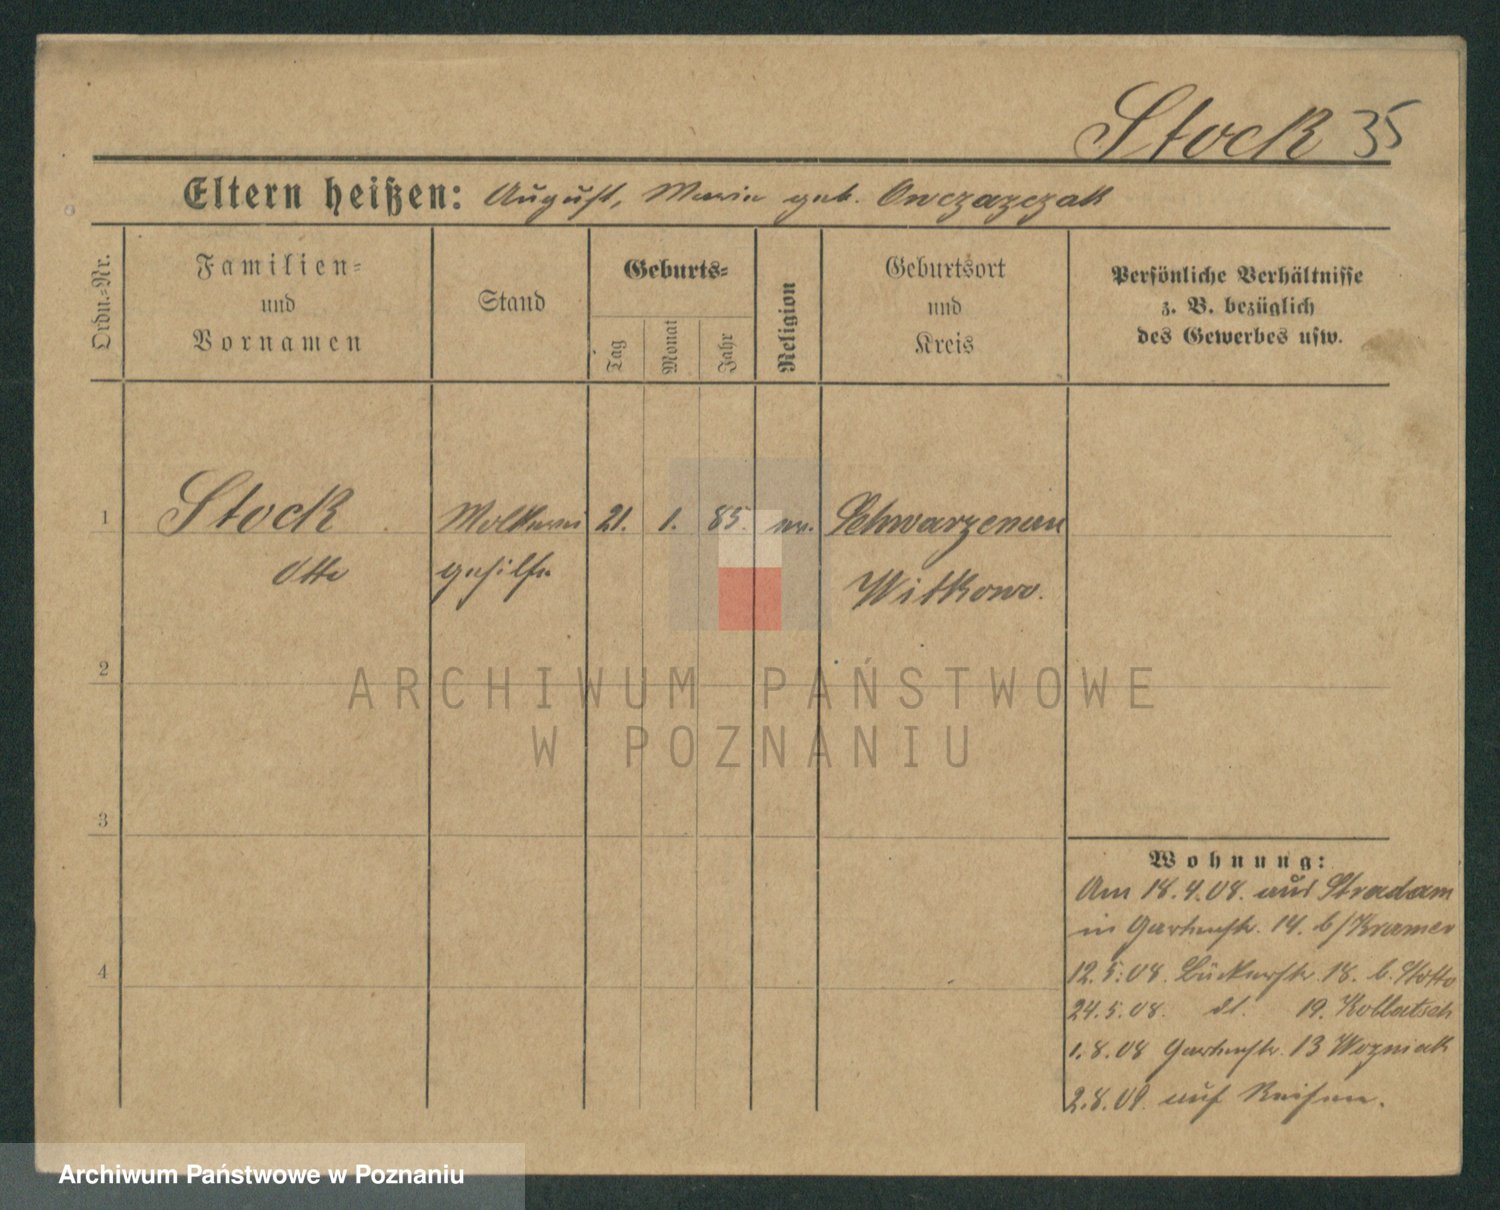 Stock 35
Eltern heißen: August, Maria geb. Owczazczak
Ordn.-Nr.
Familien- und Vornamen
Stand
Geburts-
Tag
Monat
Jahr
Religion
Geburtsort und Kreis
Persönliche Verhältnisse
z. B. bezüglich
des Gewerbes usw.
1 Stock Molkerei 21. 1. 85. ev. Schwarzenau
Otto gehilfe Witkowo.
2
ARCHIWUM PAŃSTWOWE
W POZNANIU
3
4
Wohnung:
Am 18.4.08. aus Stradam
in Gartenstr. 14. b/Kramer
12.5.08. Bückerstr. 18. b.
24.5.08. dt. 19. Kollatsch
1.8.08 Gartenstr. 13 Wozniak
2.8.09. auf Reisen.
Archiwum Państwowe w Poznaniu